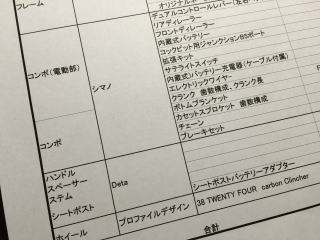 フレーム
オリジナル
デュアルコントロールレバー(左右
リアディレーラー
フロントディレーラー
内蔵式バッテリー
コックピット用ジャンクションB5ポート
拡張キット
サテライトスイッチ
コンポ(電動部)
シマノ
内蔵式バッテリー充電器(ケーブル付属)
エレクトリックワイヤー
クランク 歯数構成、クランク長
ボトムブランケット
カセットスプロケット 歯数構成
チェーン
ブレーキセット
コンポ
ハンドル
スペーサー
ステム
Deta
シートポスト
シートポストバッテリーアダプター
ホイール
プロファイルデザイン
38 TWENTY FOUR carbon Clincher
合計